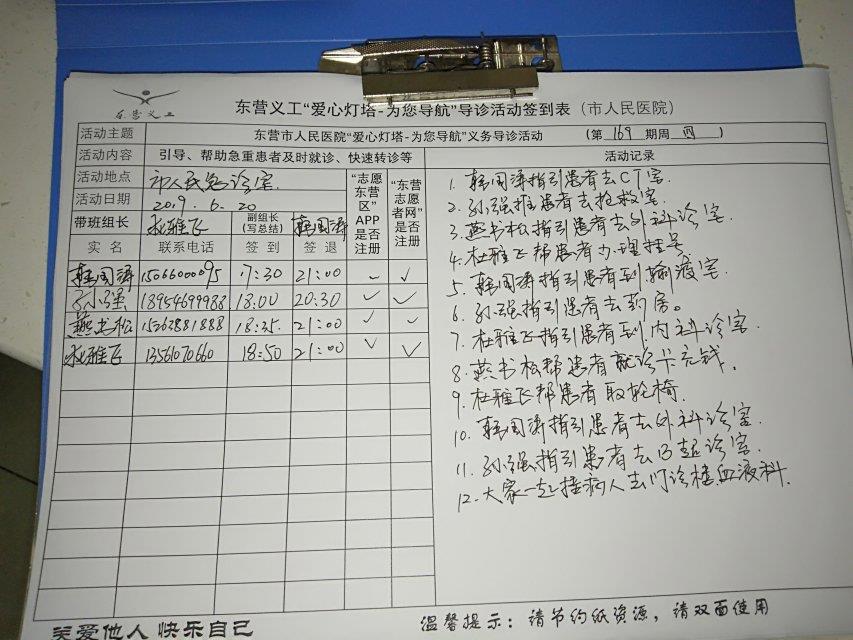 东营义工
东营义工“爱心灯塔-为您导航”导诊活动签到表（市人民医院）
活动主题 东营市人民医院“爱心灯塔-为您导航”义务导诊活动 （第 169 期周 四 ）
活动内容 引导、帮助急重患者及时就诊、快速转诊等 活动记录
活动地点 市人民急诊室
活动日期 2019.6.20
带班组长 杜雅飞 副组长（写总结） 韩国涛
“志愿东营区”APP是否注册
“东营志愿者网”是否注册
实名 联系电话 签到 签退
韩国涛 15066000095 17:30 21:00 ✓ ✓
孙强 18954699988 18:00 20:30 ✓ ✓
燕书松 15262881888 18:25. 21:00 ✓ ✓
杜雅飞 13561070660 18:50 21:00 ✓ ✓
1. 韩国涛指引患者去CT室.
2. 孙强推患者去抢救室.
3. 燕书松指引患者去外科诊室.
4. 杜雅飞帮患者办理挂号
5. 韩国涛指引患者到输液室.
6. 孙强指引患者去药房。
7. 杜雅飞指引患者到内科诊室.
8. 燕书松帮患者就诊卡充钱.
9. 杜雅飞帮患者取轮椅.
10. 韩国涛指引患者去外科诊室.
11. 孙强指引患者去B超诊室.
12. 大家一起推病人去门诊楼血液科.
关爱他人 快乐自己
温馨提示：请节约纸资源，请双面使用